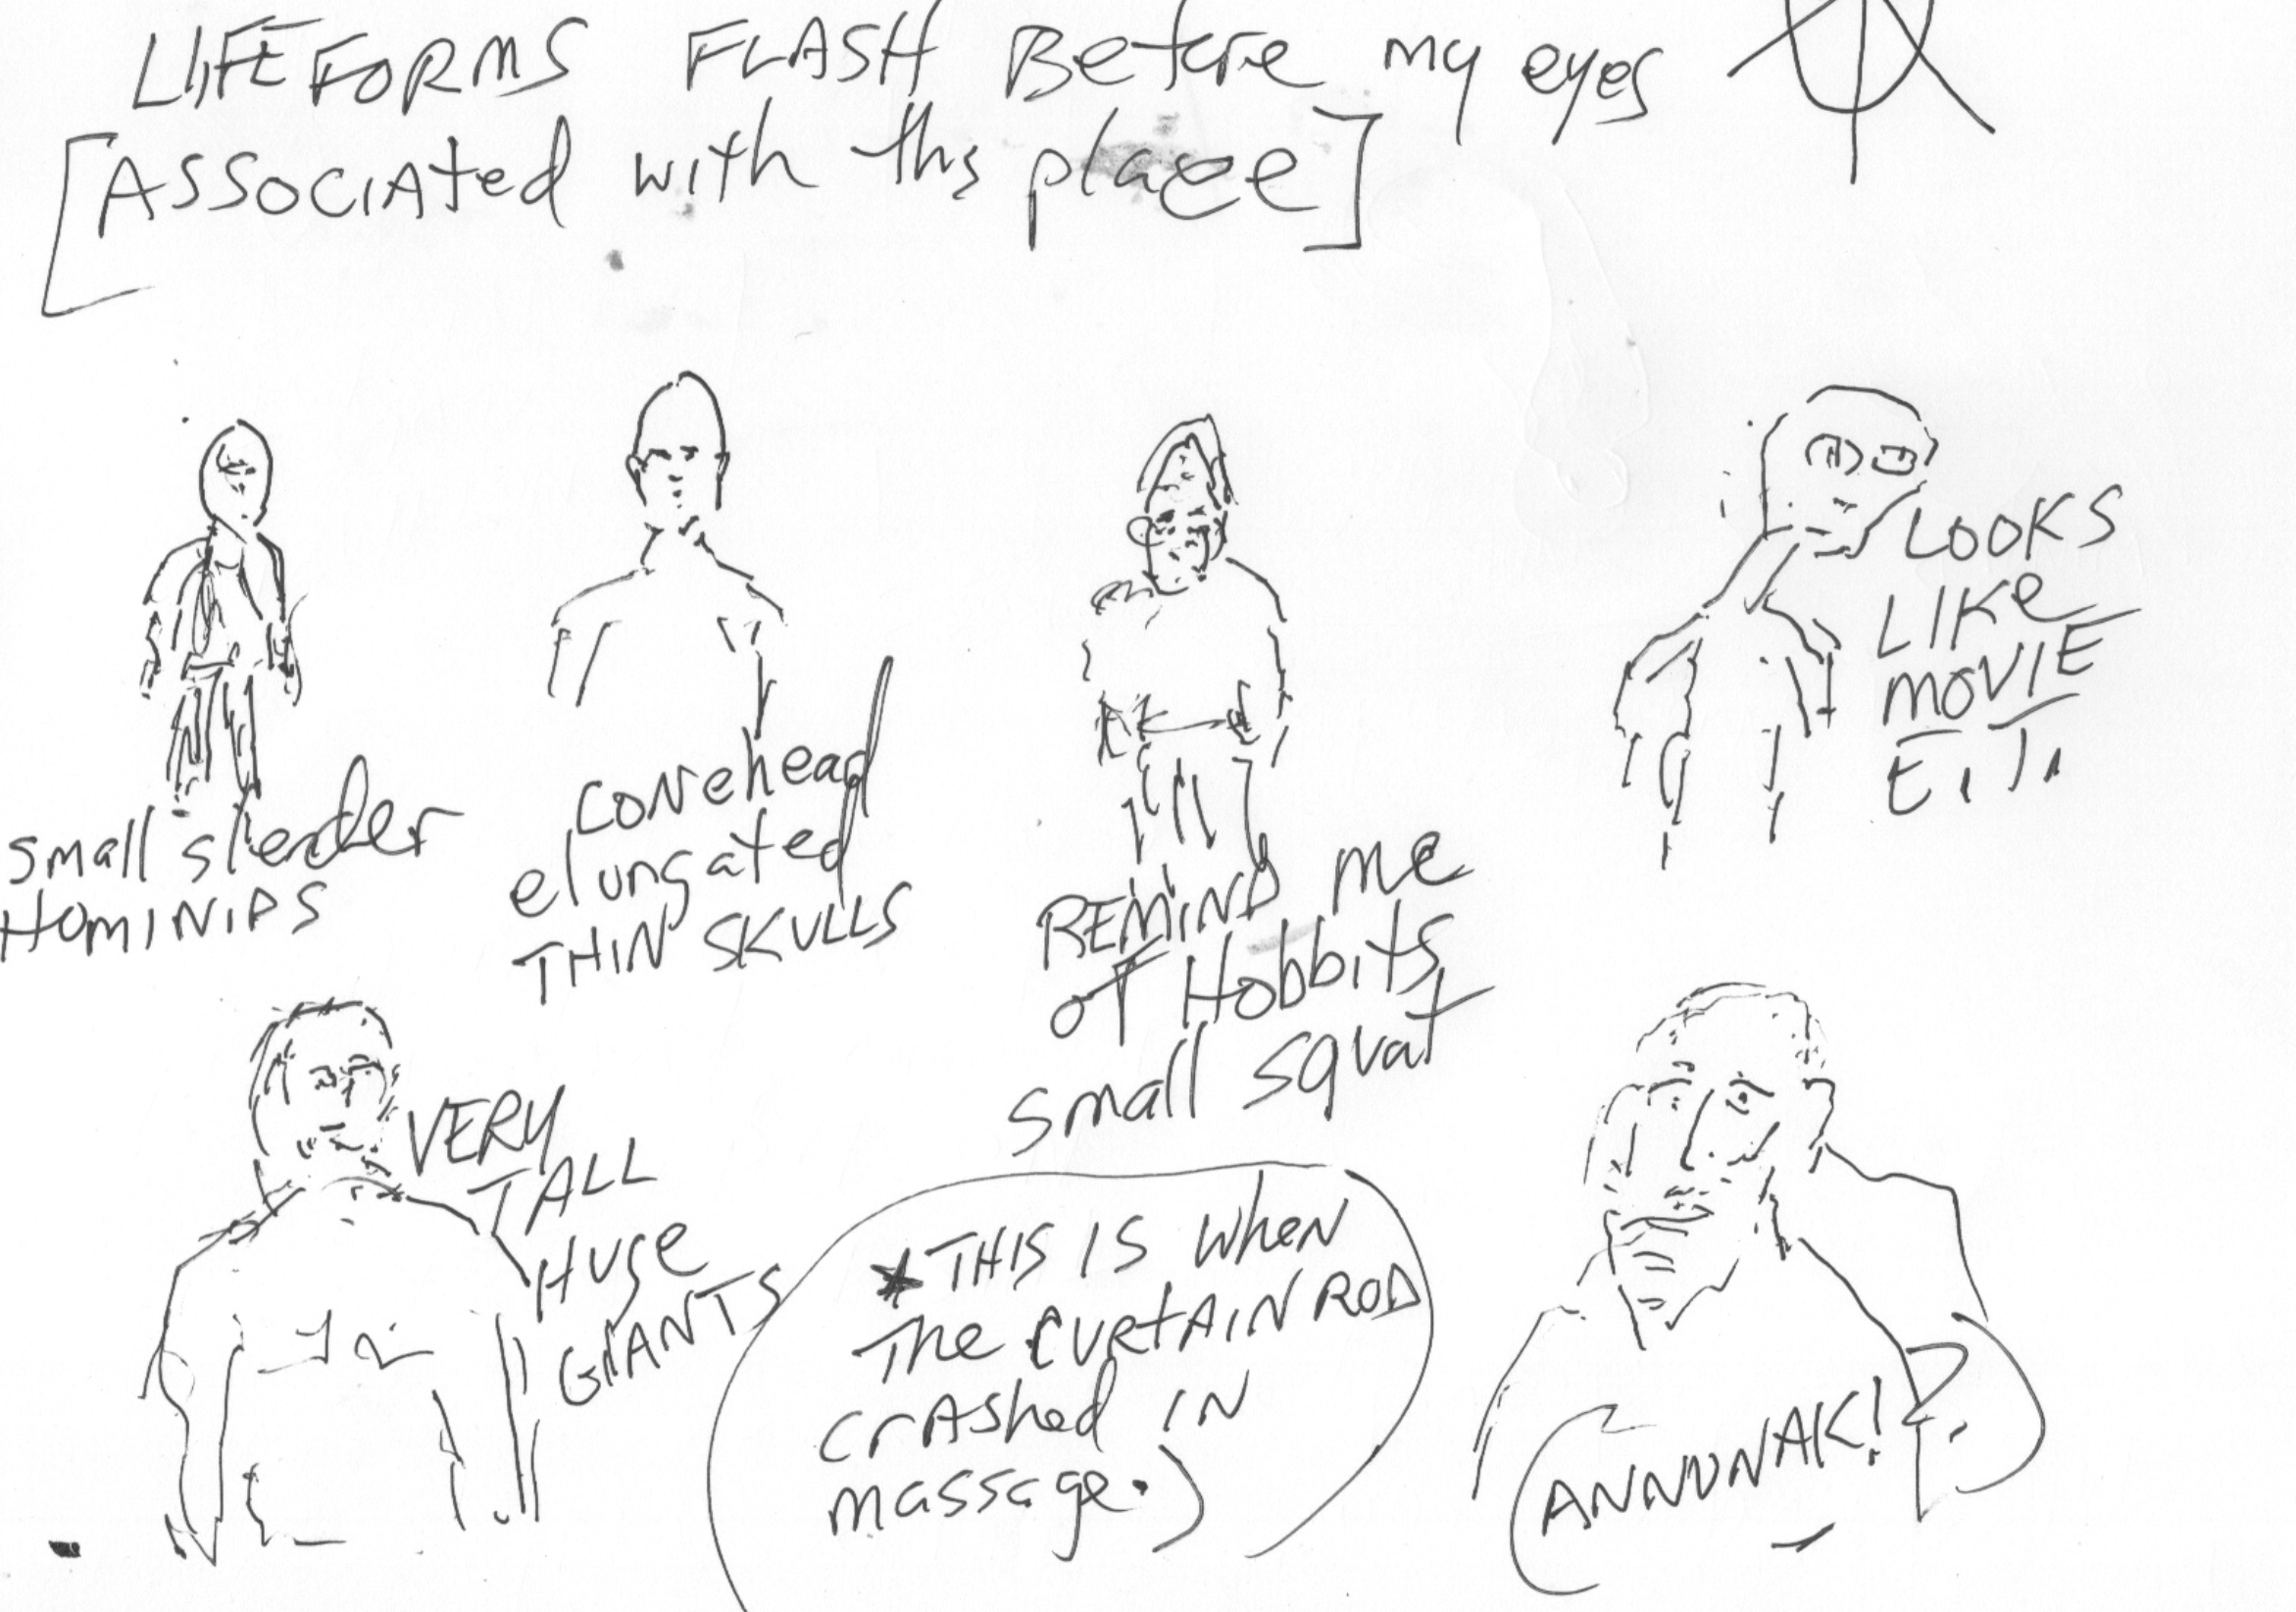 LIFE FORMS FLASH Before my eyes
[ASSOCIAted with ths place]
small slender
HOMINIDS
CONehead
elungated
THIN SKULLS
REMIND me
of Hobbits
small squat
LOOKS
LIKe
MOVIE
E.T.
VERY
TALL
HUge
GIANTS
*THIS IS wheN
The CURtAIN ROD
crAshed IN
massage.)
(ANNUNAKI?)